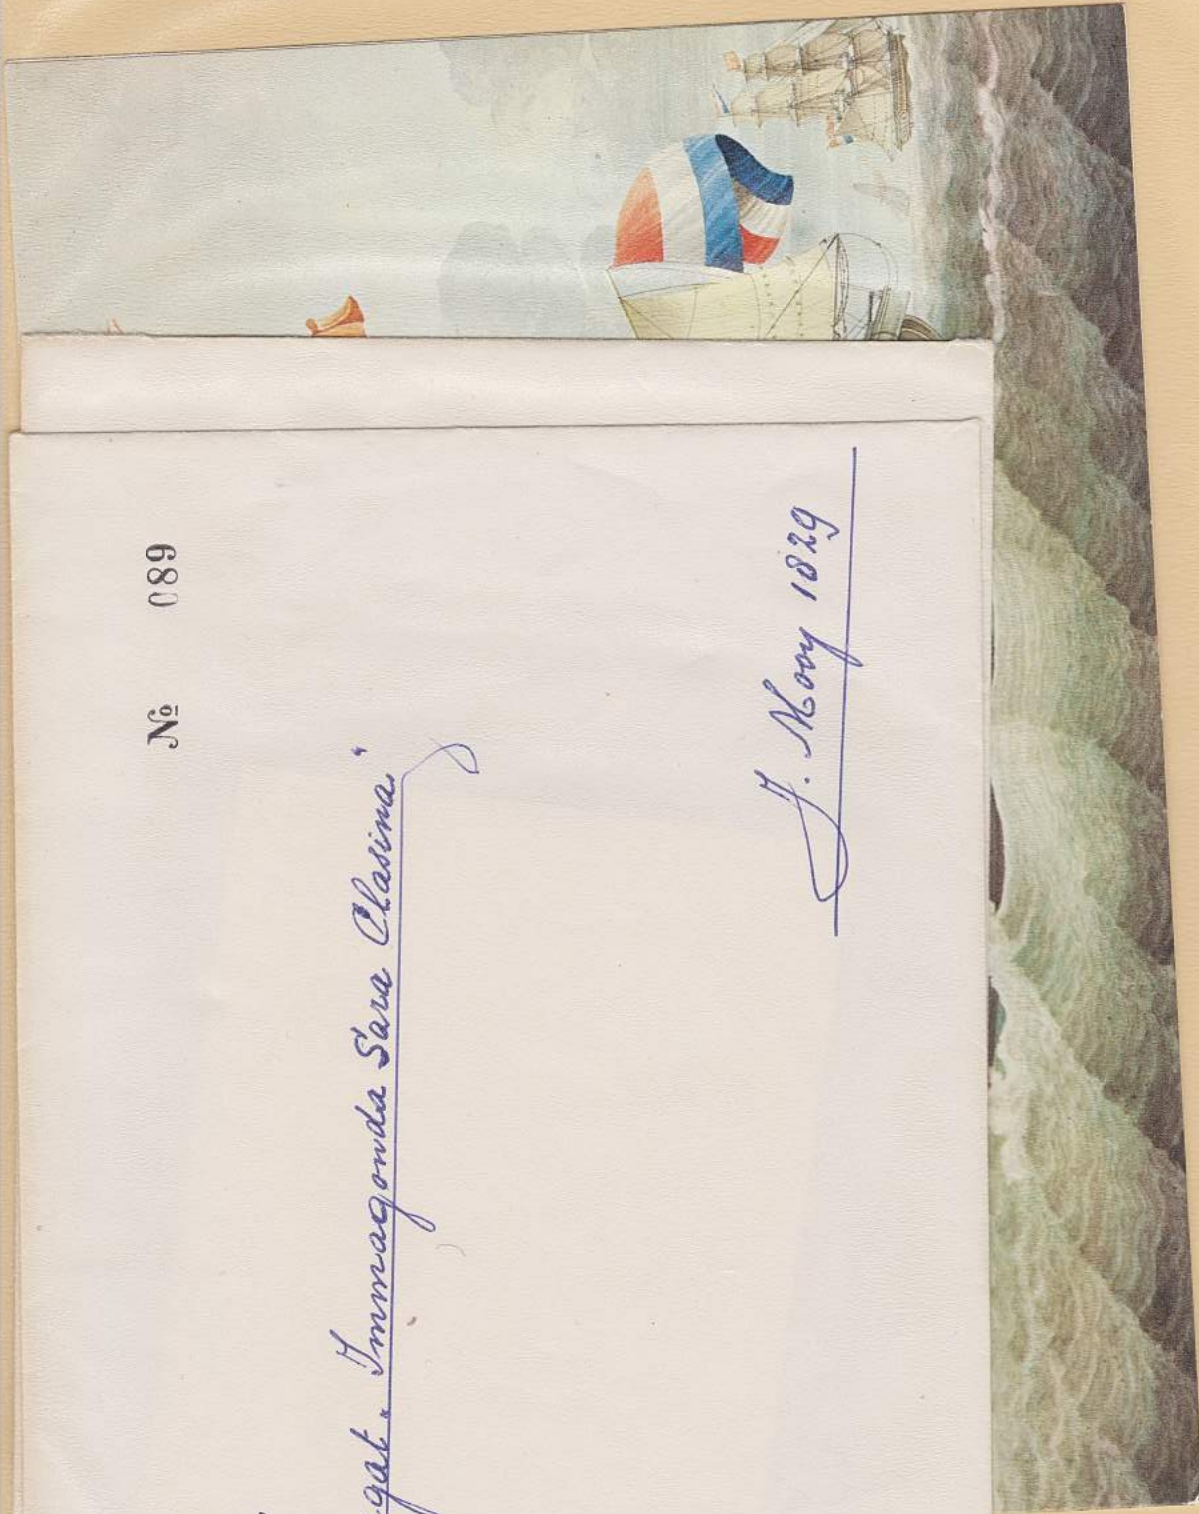 № 089
gat „Immagonda Sara Clasina“
J. Mooy 1829